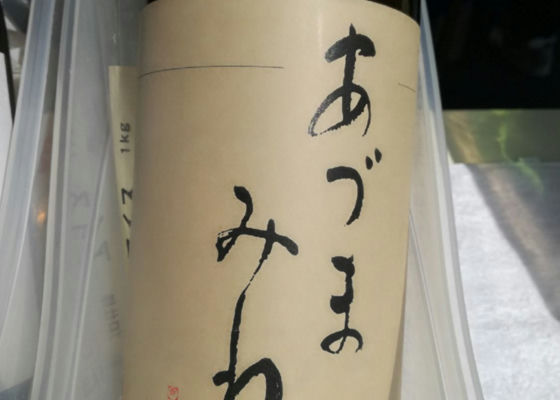 あづま
みね
1kg